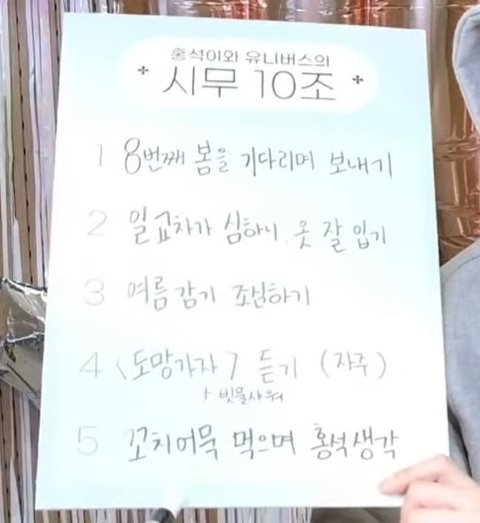 홍석이와 유니버스의
시무 10조
1 8번째 봄을 기다리며 보내기
2 일교차가 심하니 옷 잘 입기
3 여름감기 조심하기
4 <도망가자> 듣기 (자주)
+ 빗물샤워
5 꼬치어묵 먹으며 홍석생각